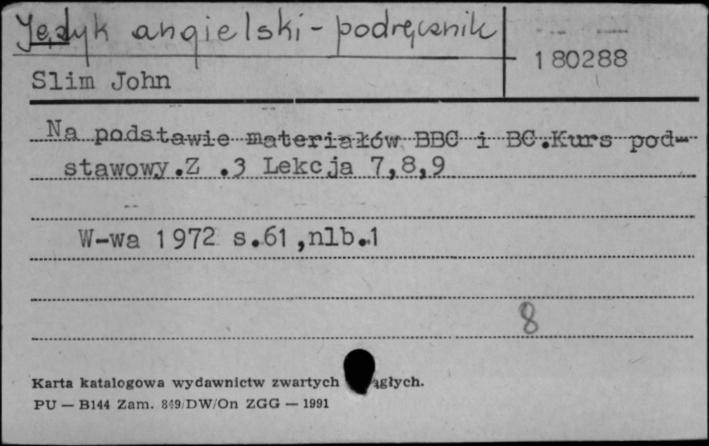 Język angielski - podręcznik
180288
Slim John
Na podstawie materiałów BBC i BC.Kurs pod-
stawowy.Z .3 Lekcja 7,8,9
W-wa 1972 s.61,nlb.1
8
Karta katalogowa wydawnictw zwartych
PU — B144 Zam. 849/DW/On ZGG — 1991